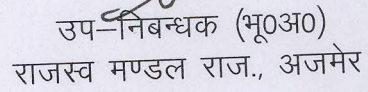 उप–निबन्धक (भू0अ0)
राजस्व मण्डल राज., अजमेर